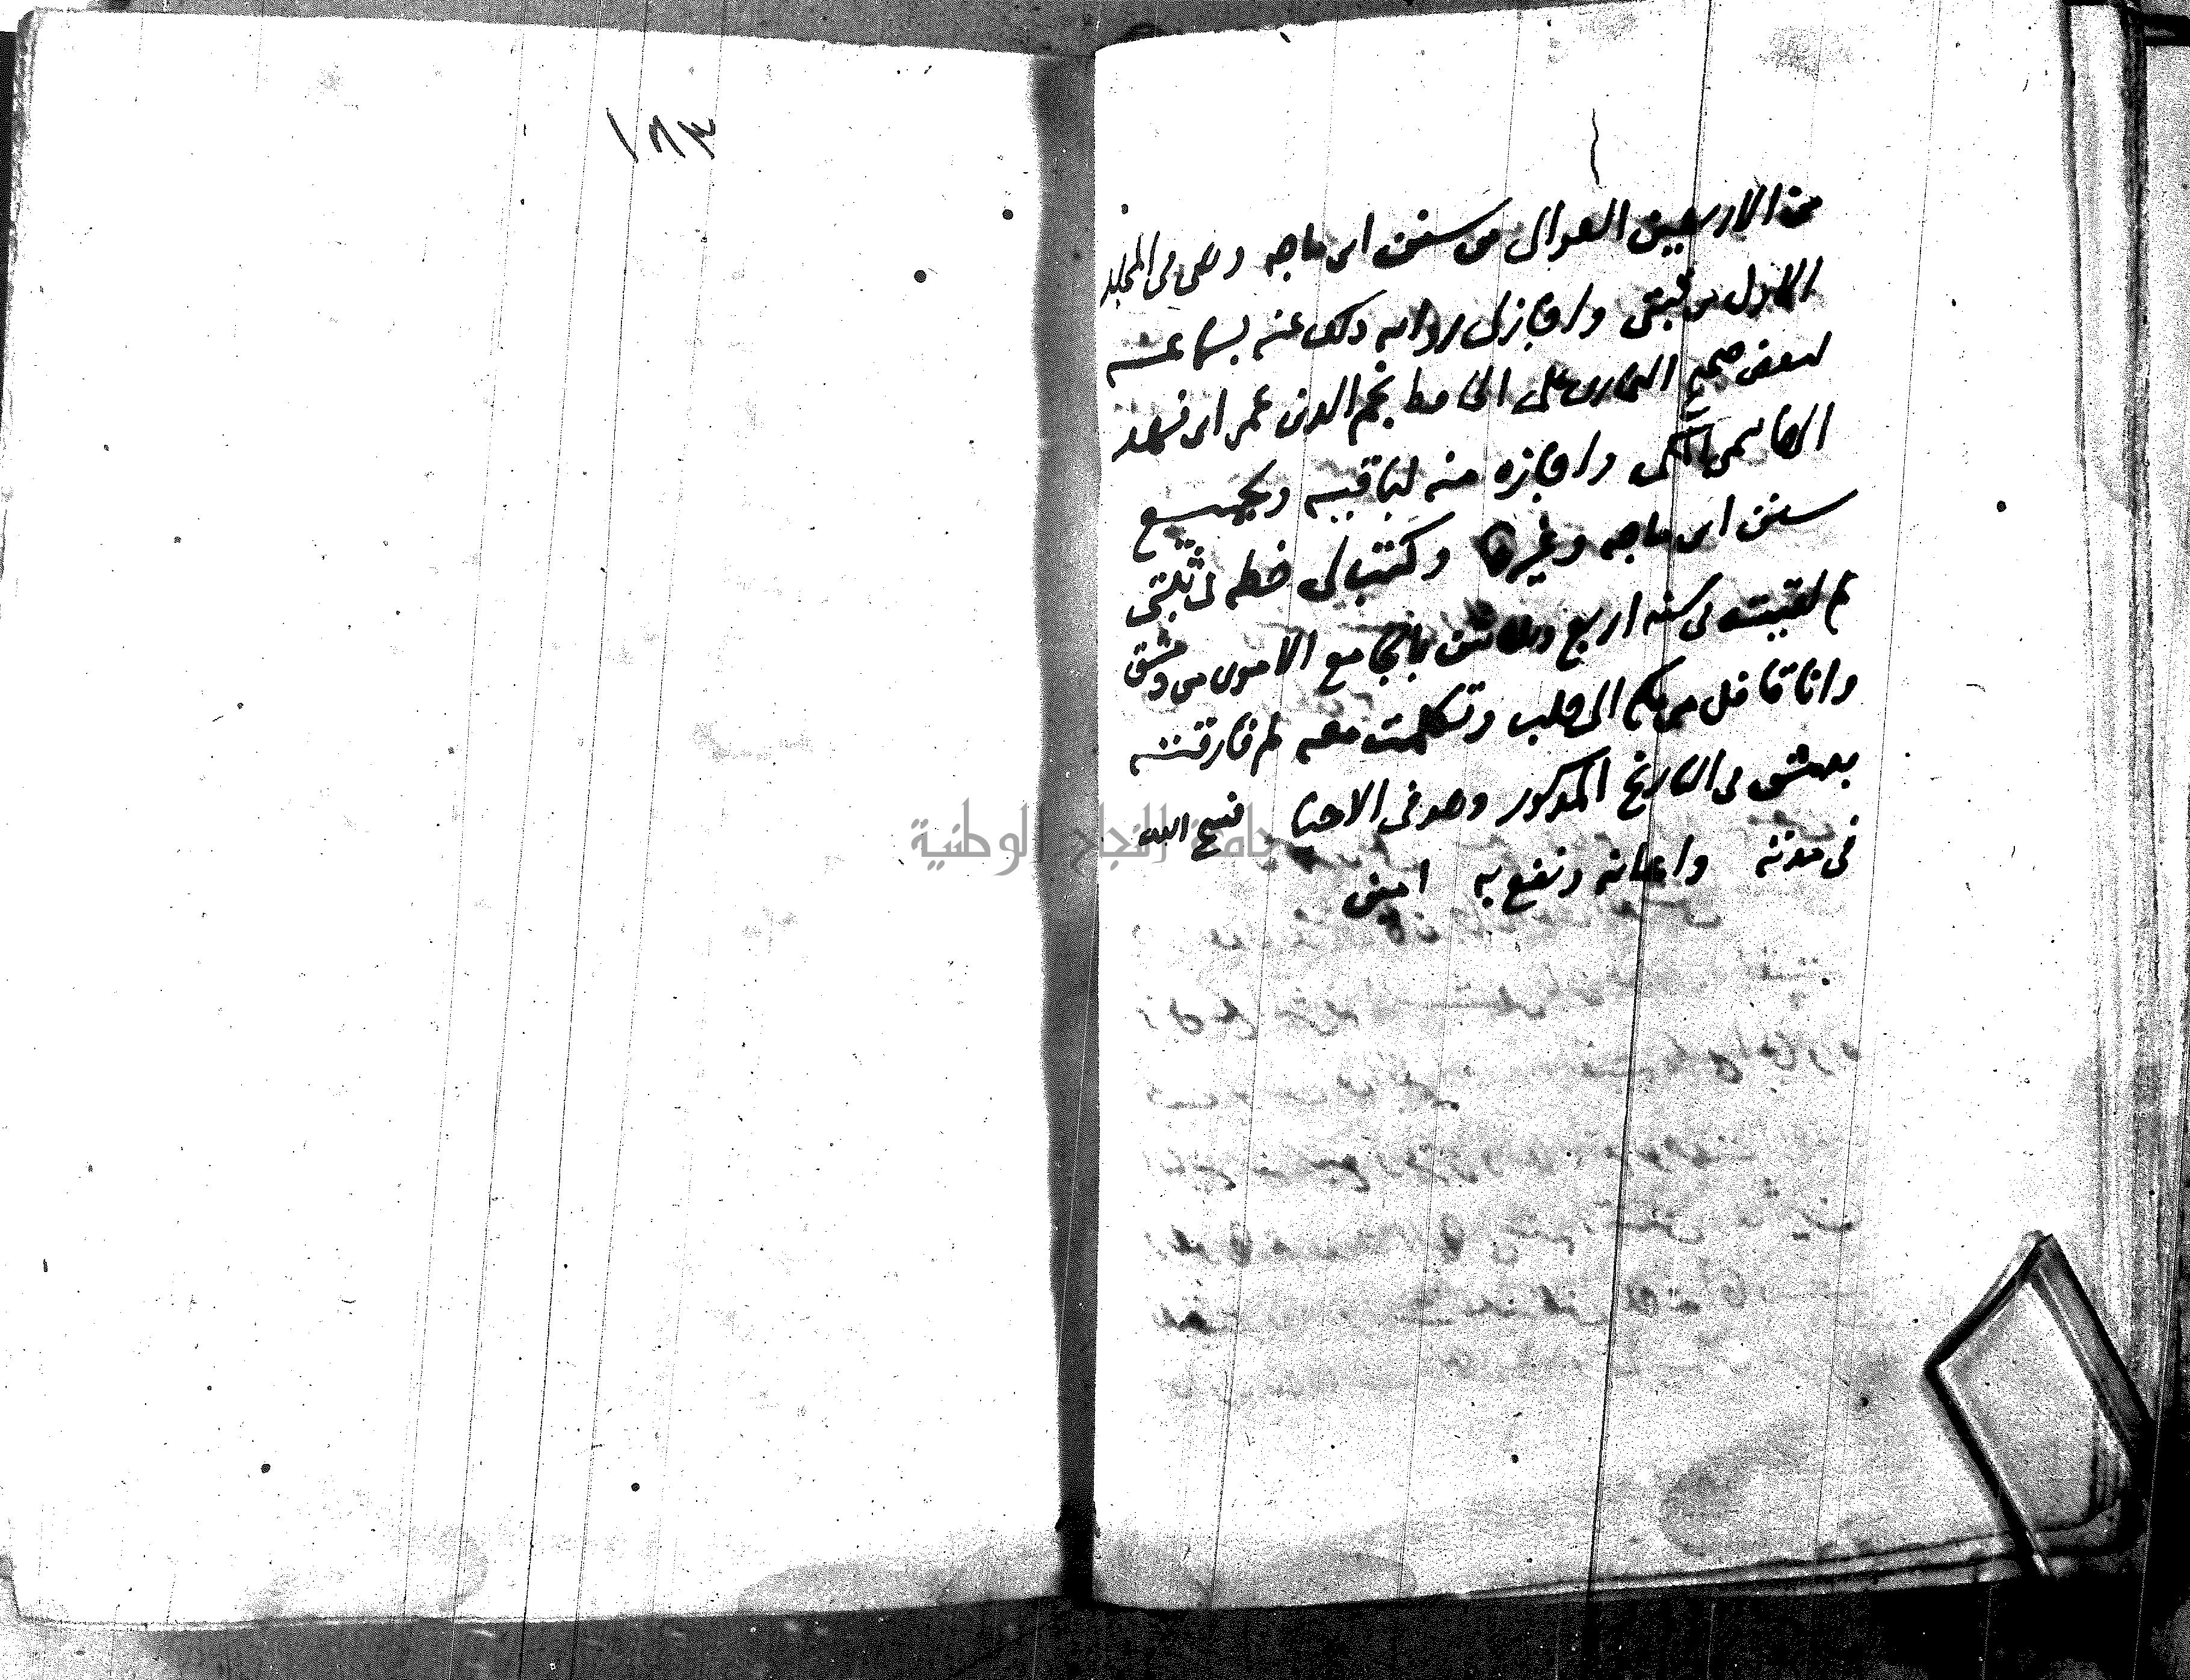 من الاربعين العوالى من سنن ابن ماجه وهى فى المجلد
الاول من ثبتى واجاز لى روايه ذلك عنه بسماعه
لبعض صحيح البخارى على الحافظ نجم الدين عمر ابن فهد
الهاشمى المكى واجازه منه لباقيه وبجميع
سنن ابن ماجه وغيرها وكتب لى خطه فى ثبتى
ثم لقيته فى سنه اربع وثلاثين بالجامع الاموى من دمشق
وانا قافل من مكه الى حلب وتكلمت معه ثم فارقته
بدمشق فى التاريخ المذكور وهو فى الاحيا فسح الله
فى مدته واعانه ونفع به امين
جامعة النجاح الوطنية